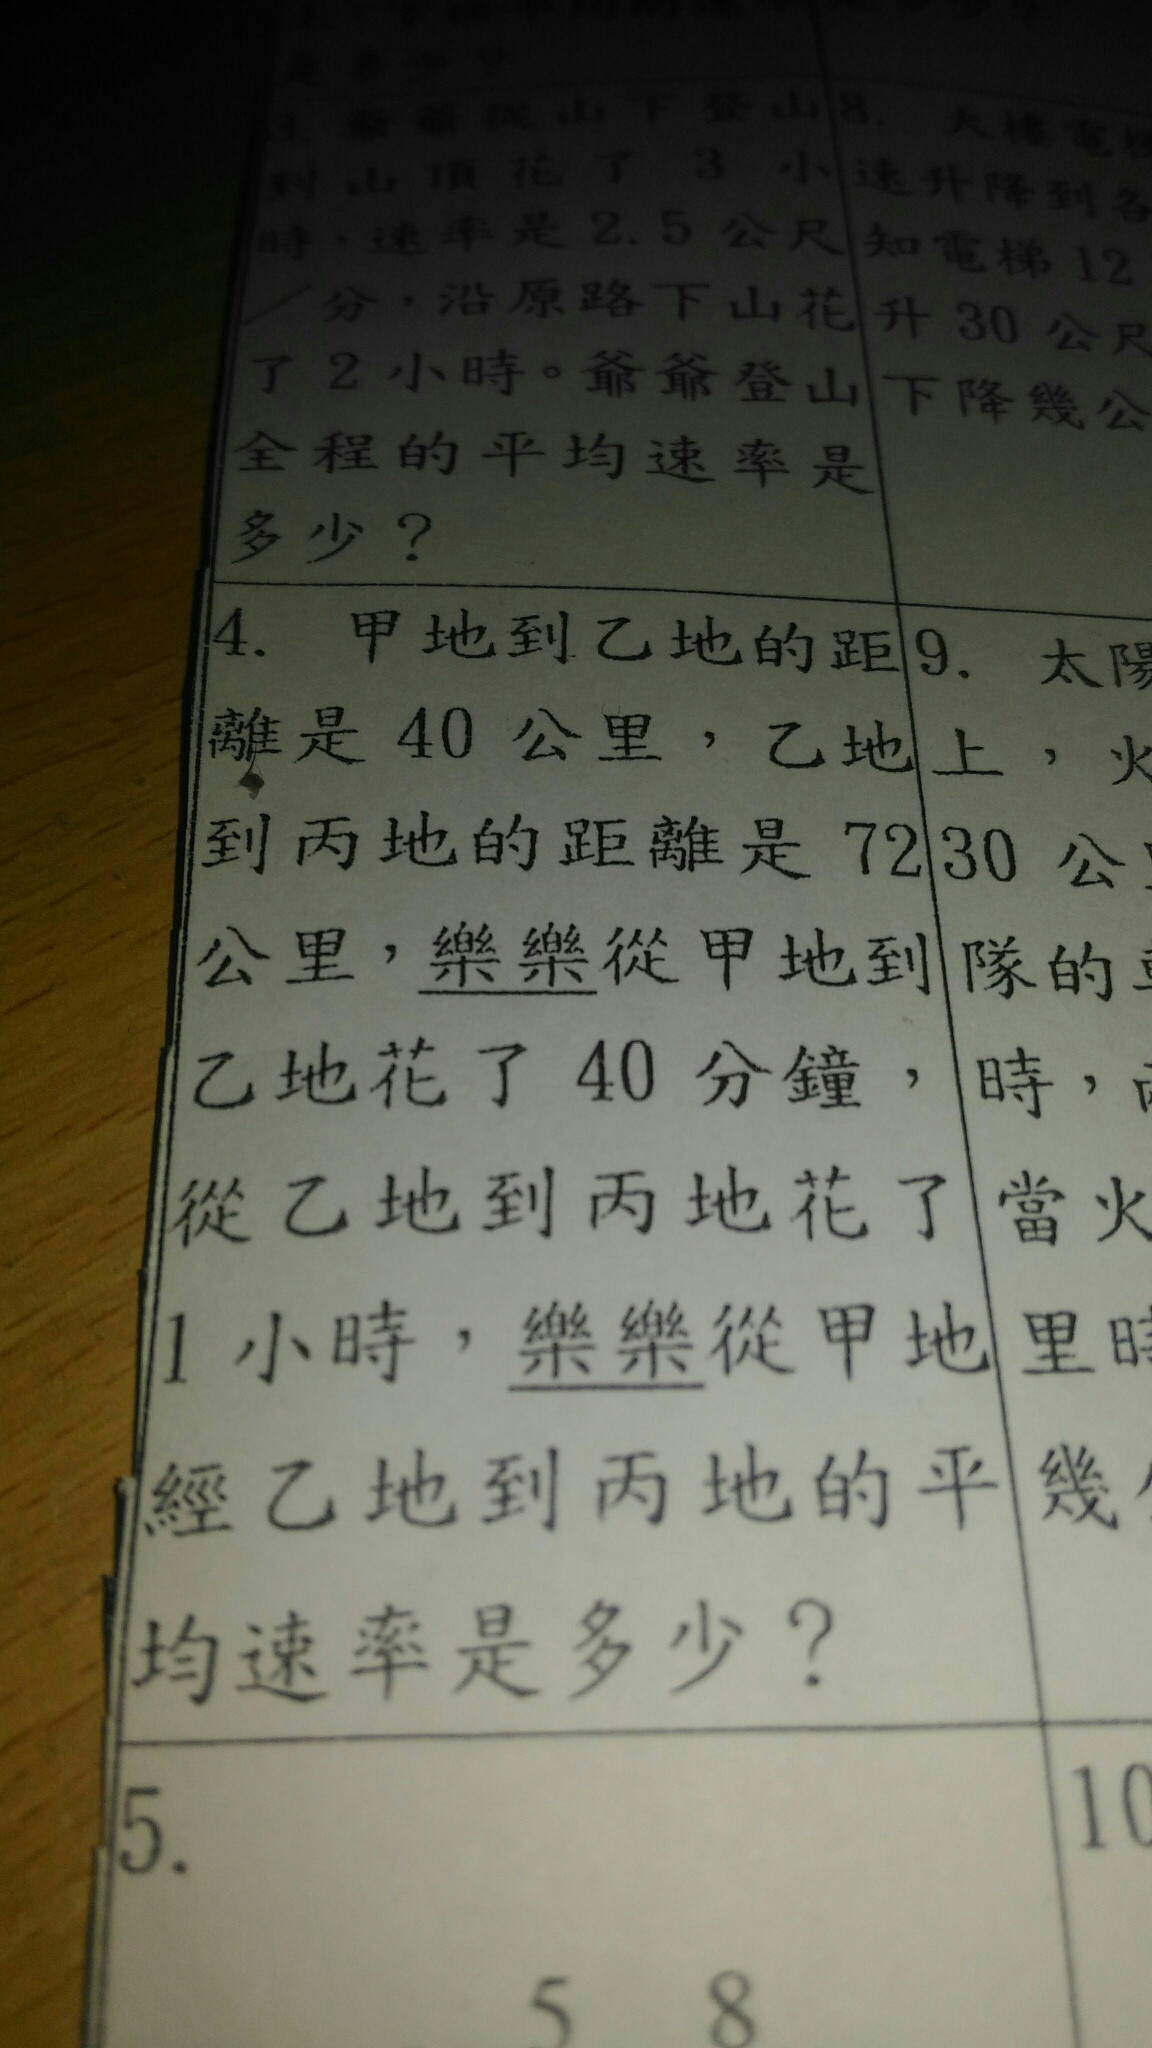 是多少？
從山下登山
到山頂花了 3 小
時，速率是 2.5 公尺
／分，沿原路下山花
了 2 小時。爺爺登山
全程的平均速率是
多少？
4. 甲地到乙地的距
離是 40 公里，乙地
到丙地的距離是 72
公里，樂樂從甲地到
乙地花了 40 分鐘，
從乙地到丙地花了
1 小時，樂樂從甲地
經乙地到丙地的平
均速率是多少？
5.
5 8
8. 大樓電梯
速升降到各
知電梯 12
升 30 公尺
下降幾公
9. 太陽
上，火
30 公里
隊的
時，
當火
里時
幾
10